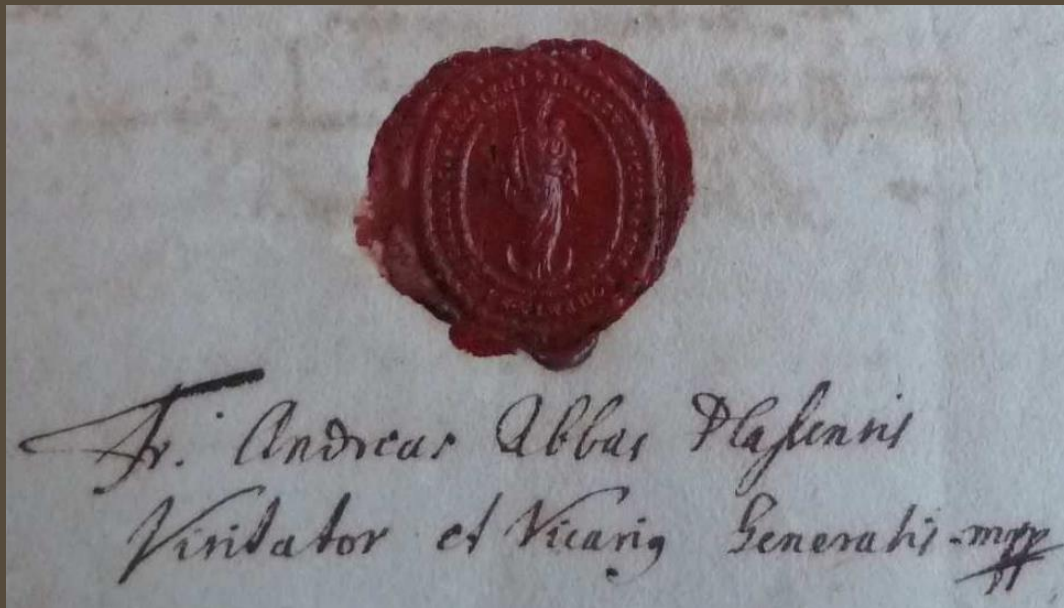 Fr. Andreas Abbas Plassensis
Visitator et Vicarig Generalis mpp